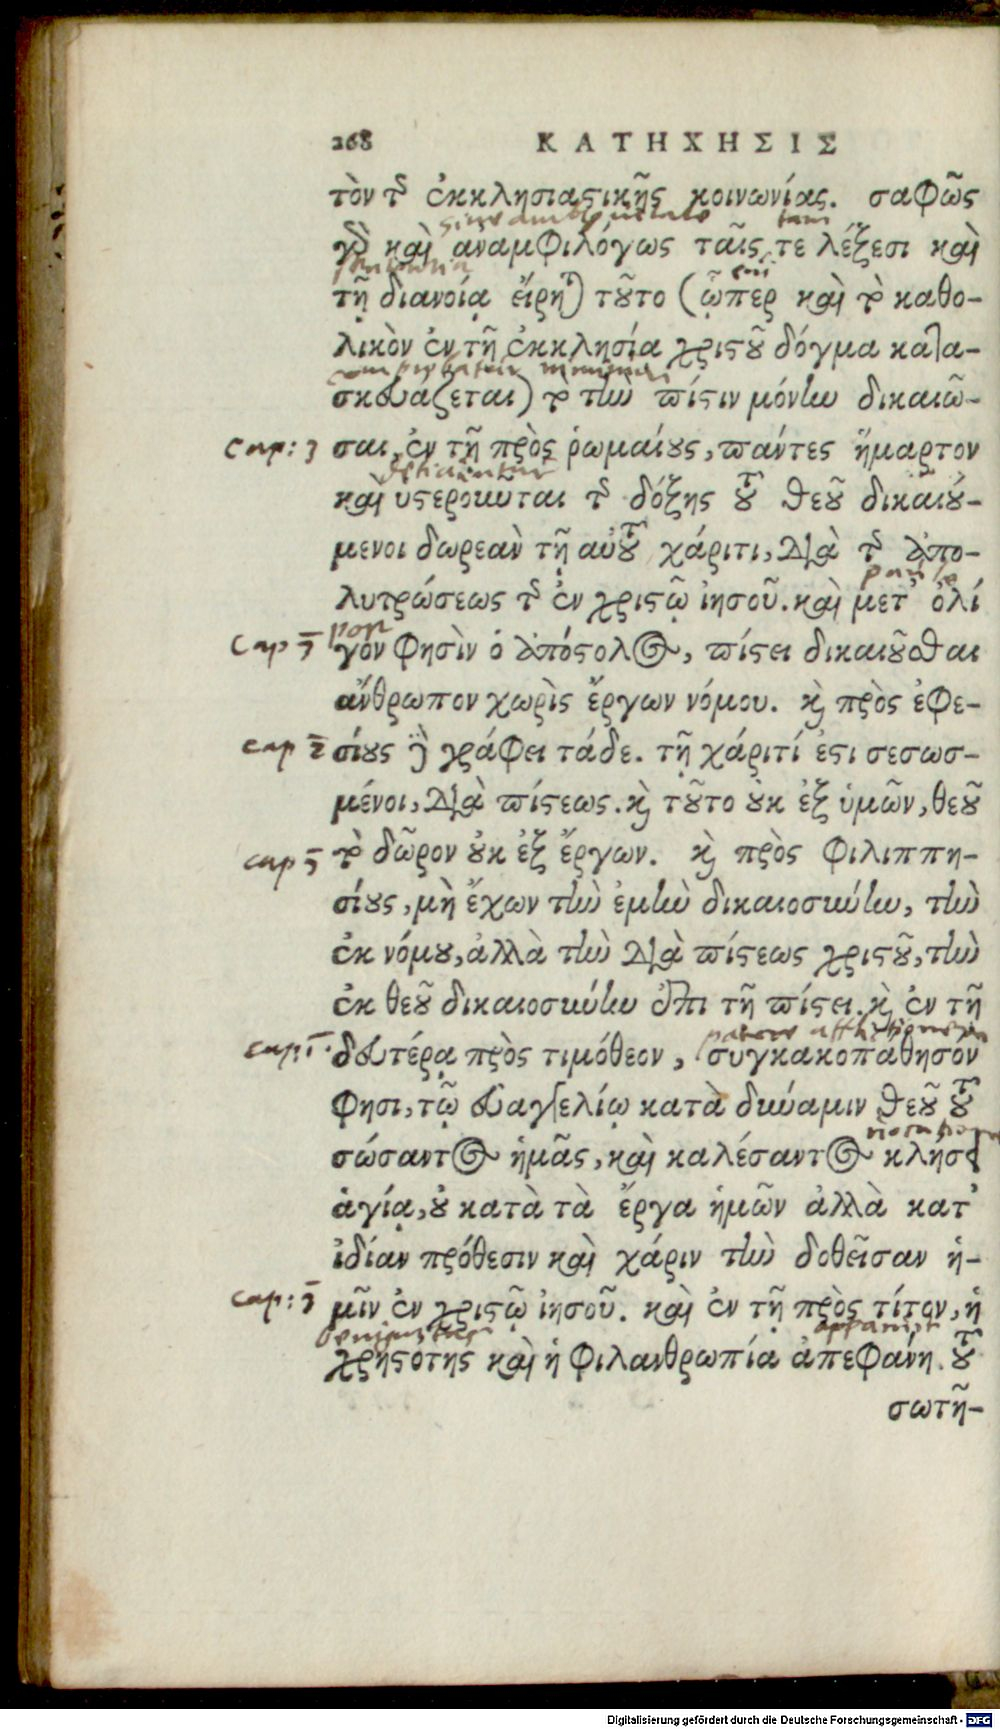 268 ΚΑΤΗΧΗΣΙΣ
τὸν τῆς ἐκκλησιαστικῆς κοινωνίας. σαφῶς
γὰρ καὶ αναμφιλόγως ταῖς τε λέξεσι καὶ
τῇ διανοίᾳ εἴρηται τοῦτο (ᾧπερ καὶ τὸ καθο-
λικὸν ἐν τῇ ἐκκλησίᾳ χριστοῦ δόγμα κατα-
σκευάζεται) τὸ τὴν πίστιν μόνην δικαιῶ-
Cap: 3 σαι, ἐν τῇ πρὸς ῥωμαίους, πάντες ἥμαρτον
καὶ υστεροῦνται τῆς δόξης τοῦ θεοῦ δικαιού-
μενοι δωρεὰν τῇ αὐτοῦ χάριτι, διὰ τῆς ἀπο-
λυτρώσεως τῆς ἐν χριστῷ ἰησοῦ. καὶ μετ' ὀλί
γον φησὶν ὁ ἀπόστολος, πίστει δικαιοῦσθαι
ἄνθρωπον χωρὶς ἔργων νόμου. καὶ πρὸς ἐφε-
cap 2 σίους δὲ γράφει τάδε. τῇ χάριτί ἐστι σεσωσ-
μένοι, διὰ πίστεως. καὶ τοῦτο οὐκ ἐξ ὑμῶν, θεοῦ
τὸ δῶρον οὐκ ἐξ ἔργων. καὶ πρὸς φιλιππη-
σίους, μὴ ἔχων τὴν ἐμὴν δικαιοσύνην, τὴν
ἐκ νόμου, ἀλλὰ τὴν διὰ πίστεως χριστοῦ, τὴν
ἐκ θεοῦ δικαιοσύνην ἐπὶ τῇ πίστει. καὶ ἐν τῇ
cap: 1. δευτέρᾳ πρὸς τιμόθεον, συγκακοπάθησον
φησι, τῷ ευαγγελίῳ κατὰ δύναμιν θεοῦ τοῦ
σώσαντος ἡμᾶς, καὶ καλέσαντος κλήσει
ἁγίᾳ, οὐ κατὰ τὰ ἔργα ἡμῶν ἀλλὰ κατ'
ἰδίαν πρόθεσιν καὶ χάριν τὴν δοθεῖσαν ἡ-
cap: 3 μῖν ἐν χριστῷ ἰησοῦ. καὶ ἐν τῇ πρὸς τίτον, ἡ
χρηστότης καὶ ἡ φιλανθρωπία ἀπεφάνη. τοῦ
σωτῆ-
Digitalisierung gefördert durch die Deutsche Forschungsgemeinschaft - DFG